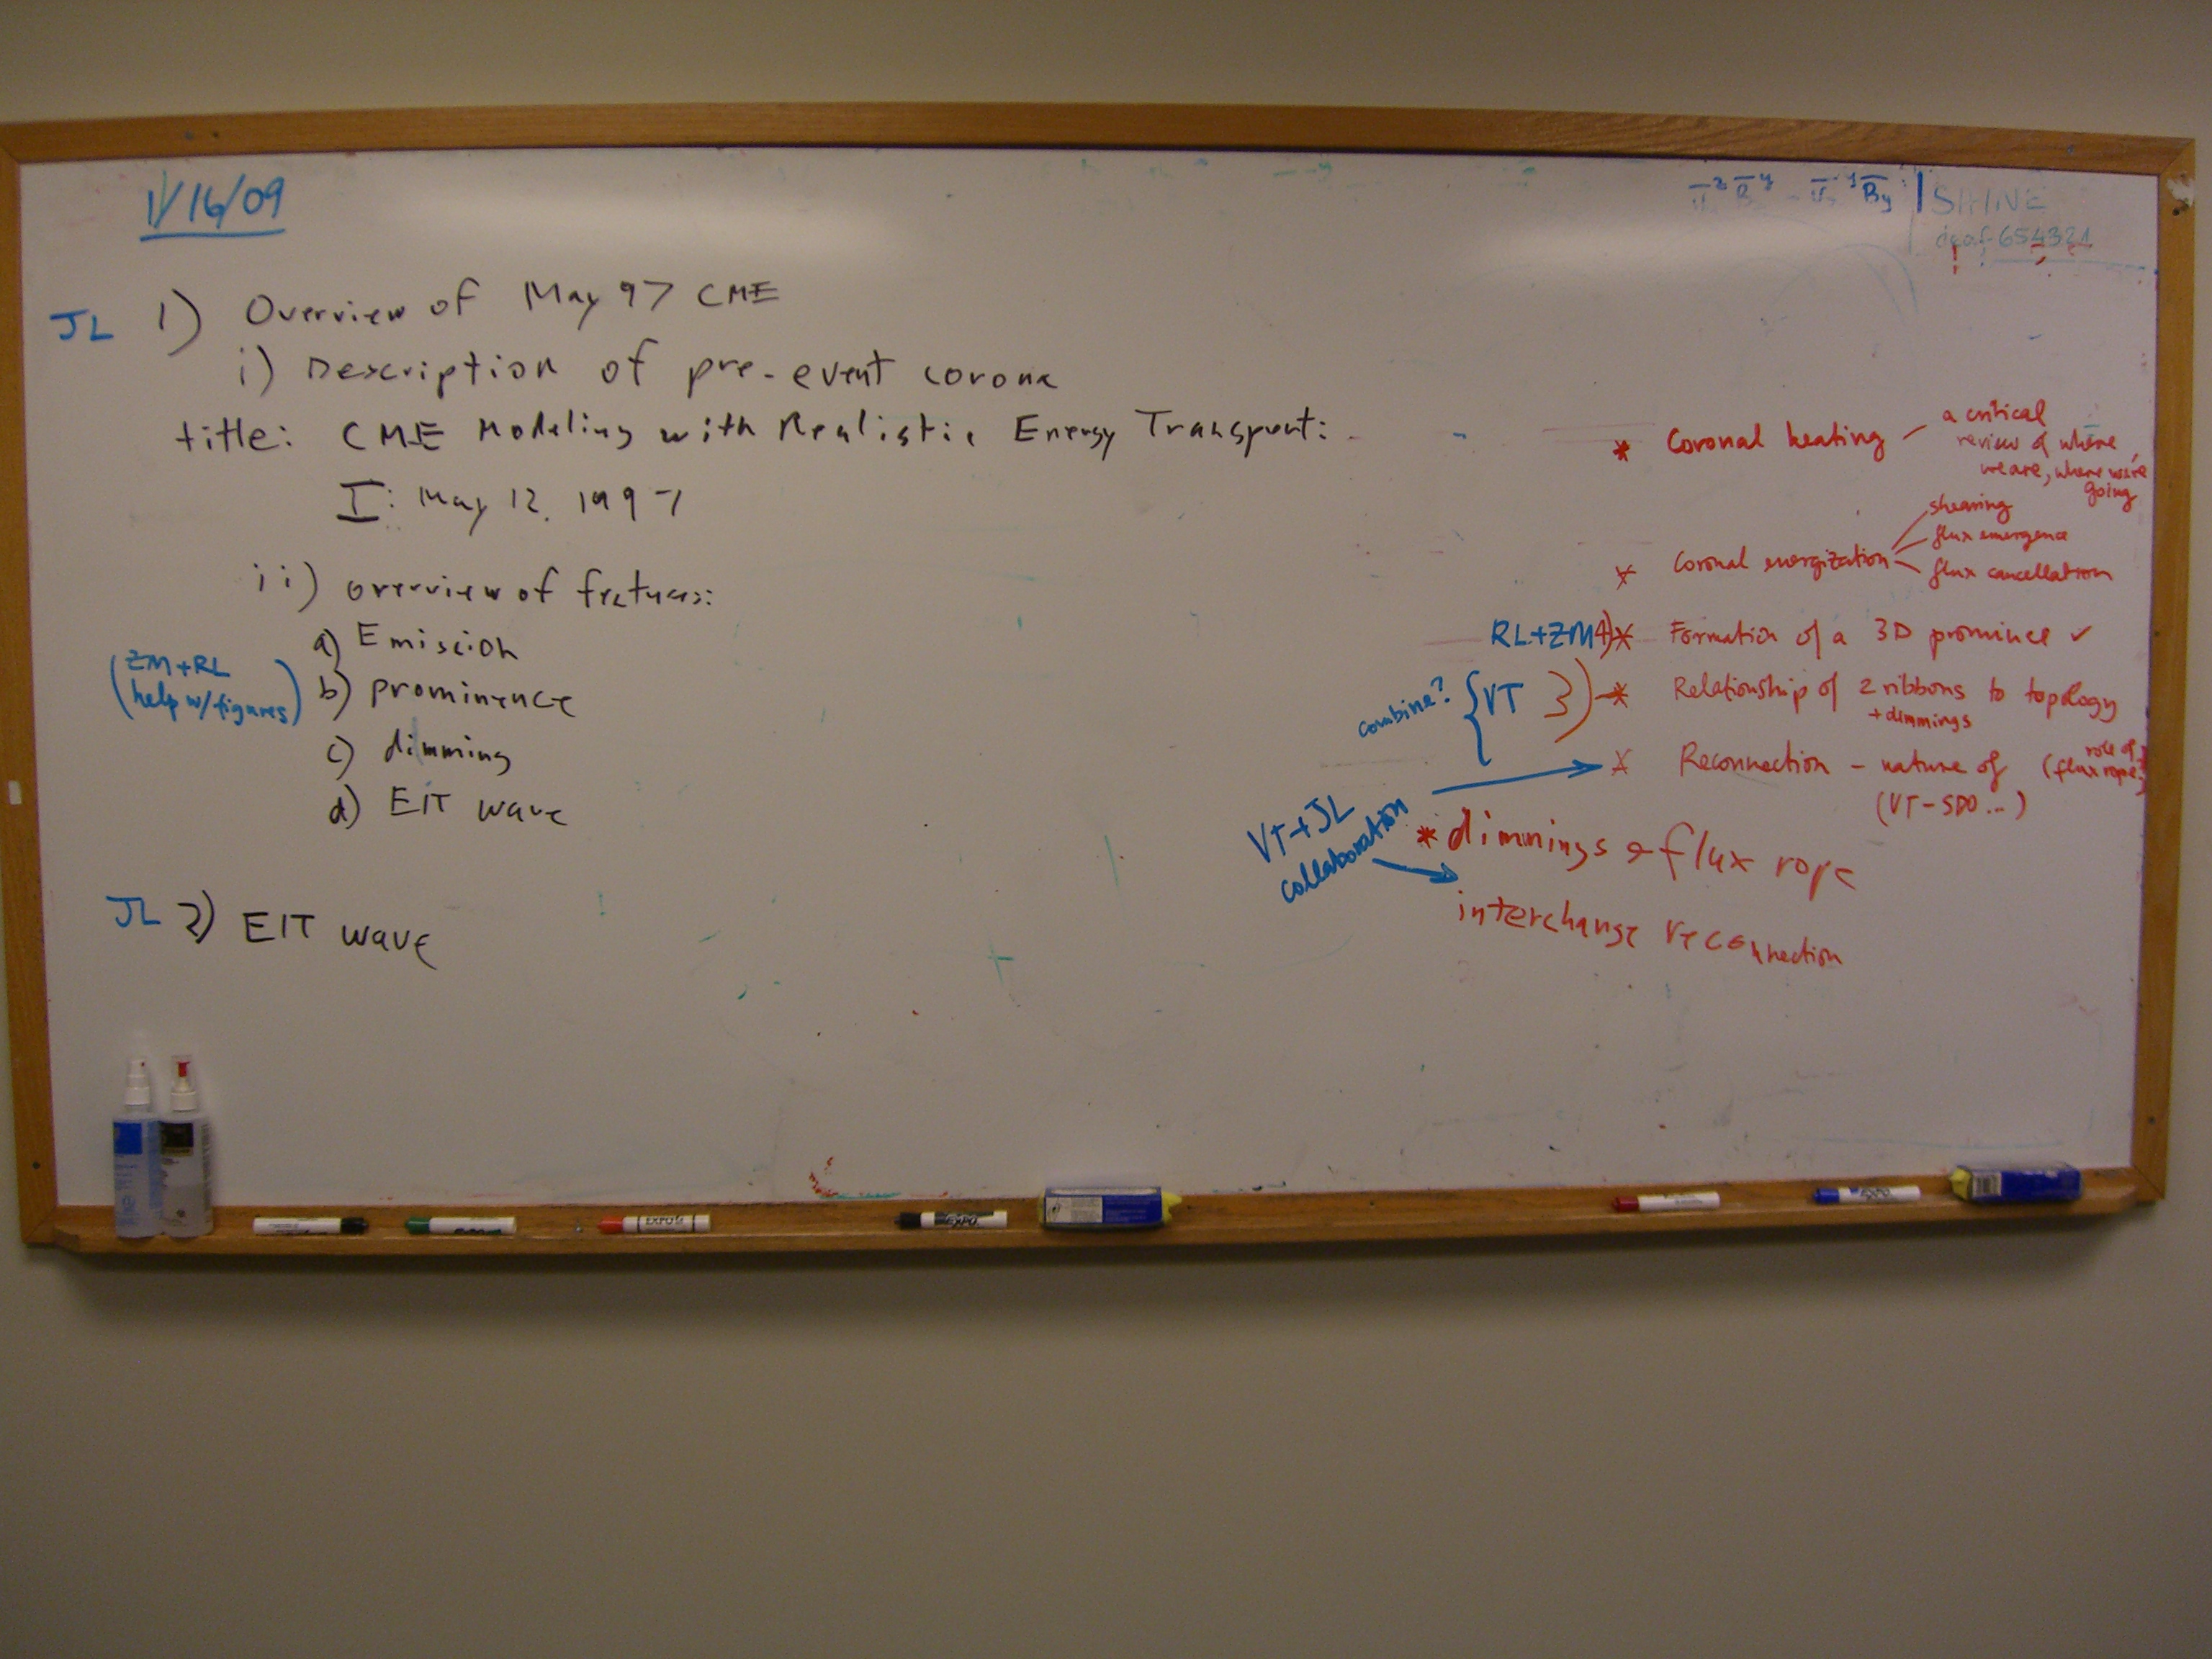 1/16/09
JL 1) Overview of May 97 CME
i) Description of pre-event corona
title: CME Modeling with Realistic Energy Transport:
I: May 12, 1997
ii) overview of features:
a) Emission
(ZM+RL
help w/figures)
b) prominence
c) dimming
d) EIT wave
JL 2) EIT wave
SHINE
* Coronal heating – a critical
review of where
we are, where we're
going
* Coronal energization
shearing
flux emergence
flux cancellation
RL+ZM 4) * Formation of a 3D prominence ✓
combine? { VT 3) – * Relationship of 2 ribbons to topology
+dimmings
* Reconnection – nature of (role of
flux rope)
(VT–SDO...)
VT+JL
collaboration
* dimmings & flux rope
interchange reconnection
EXPO
EXPO
EXPO